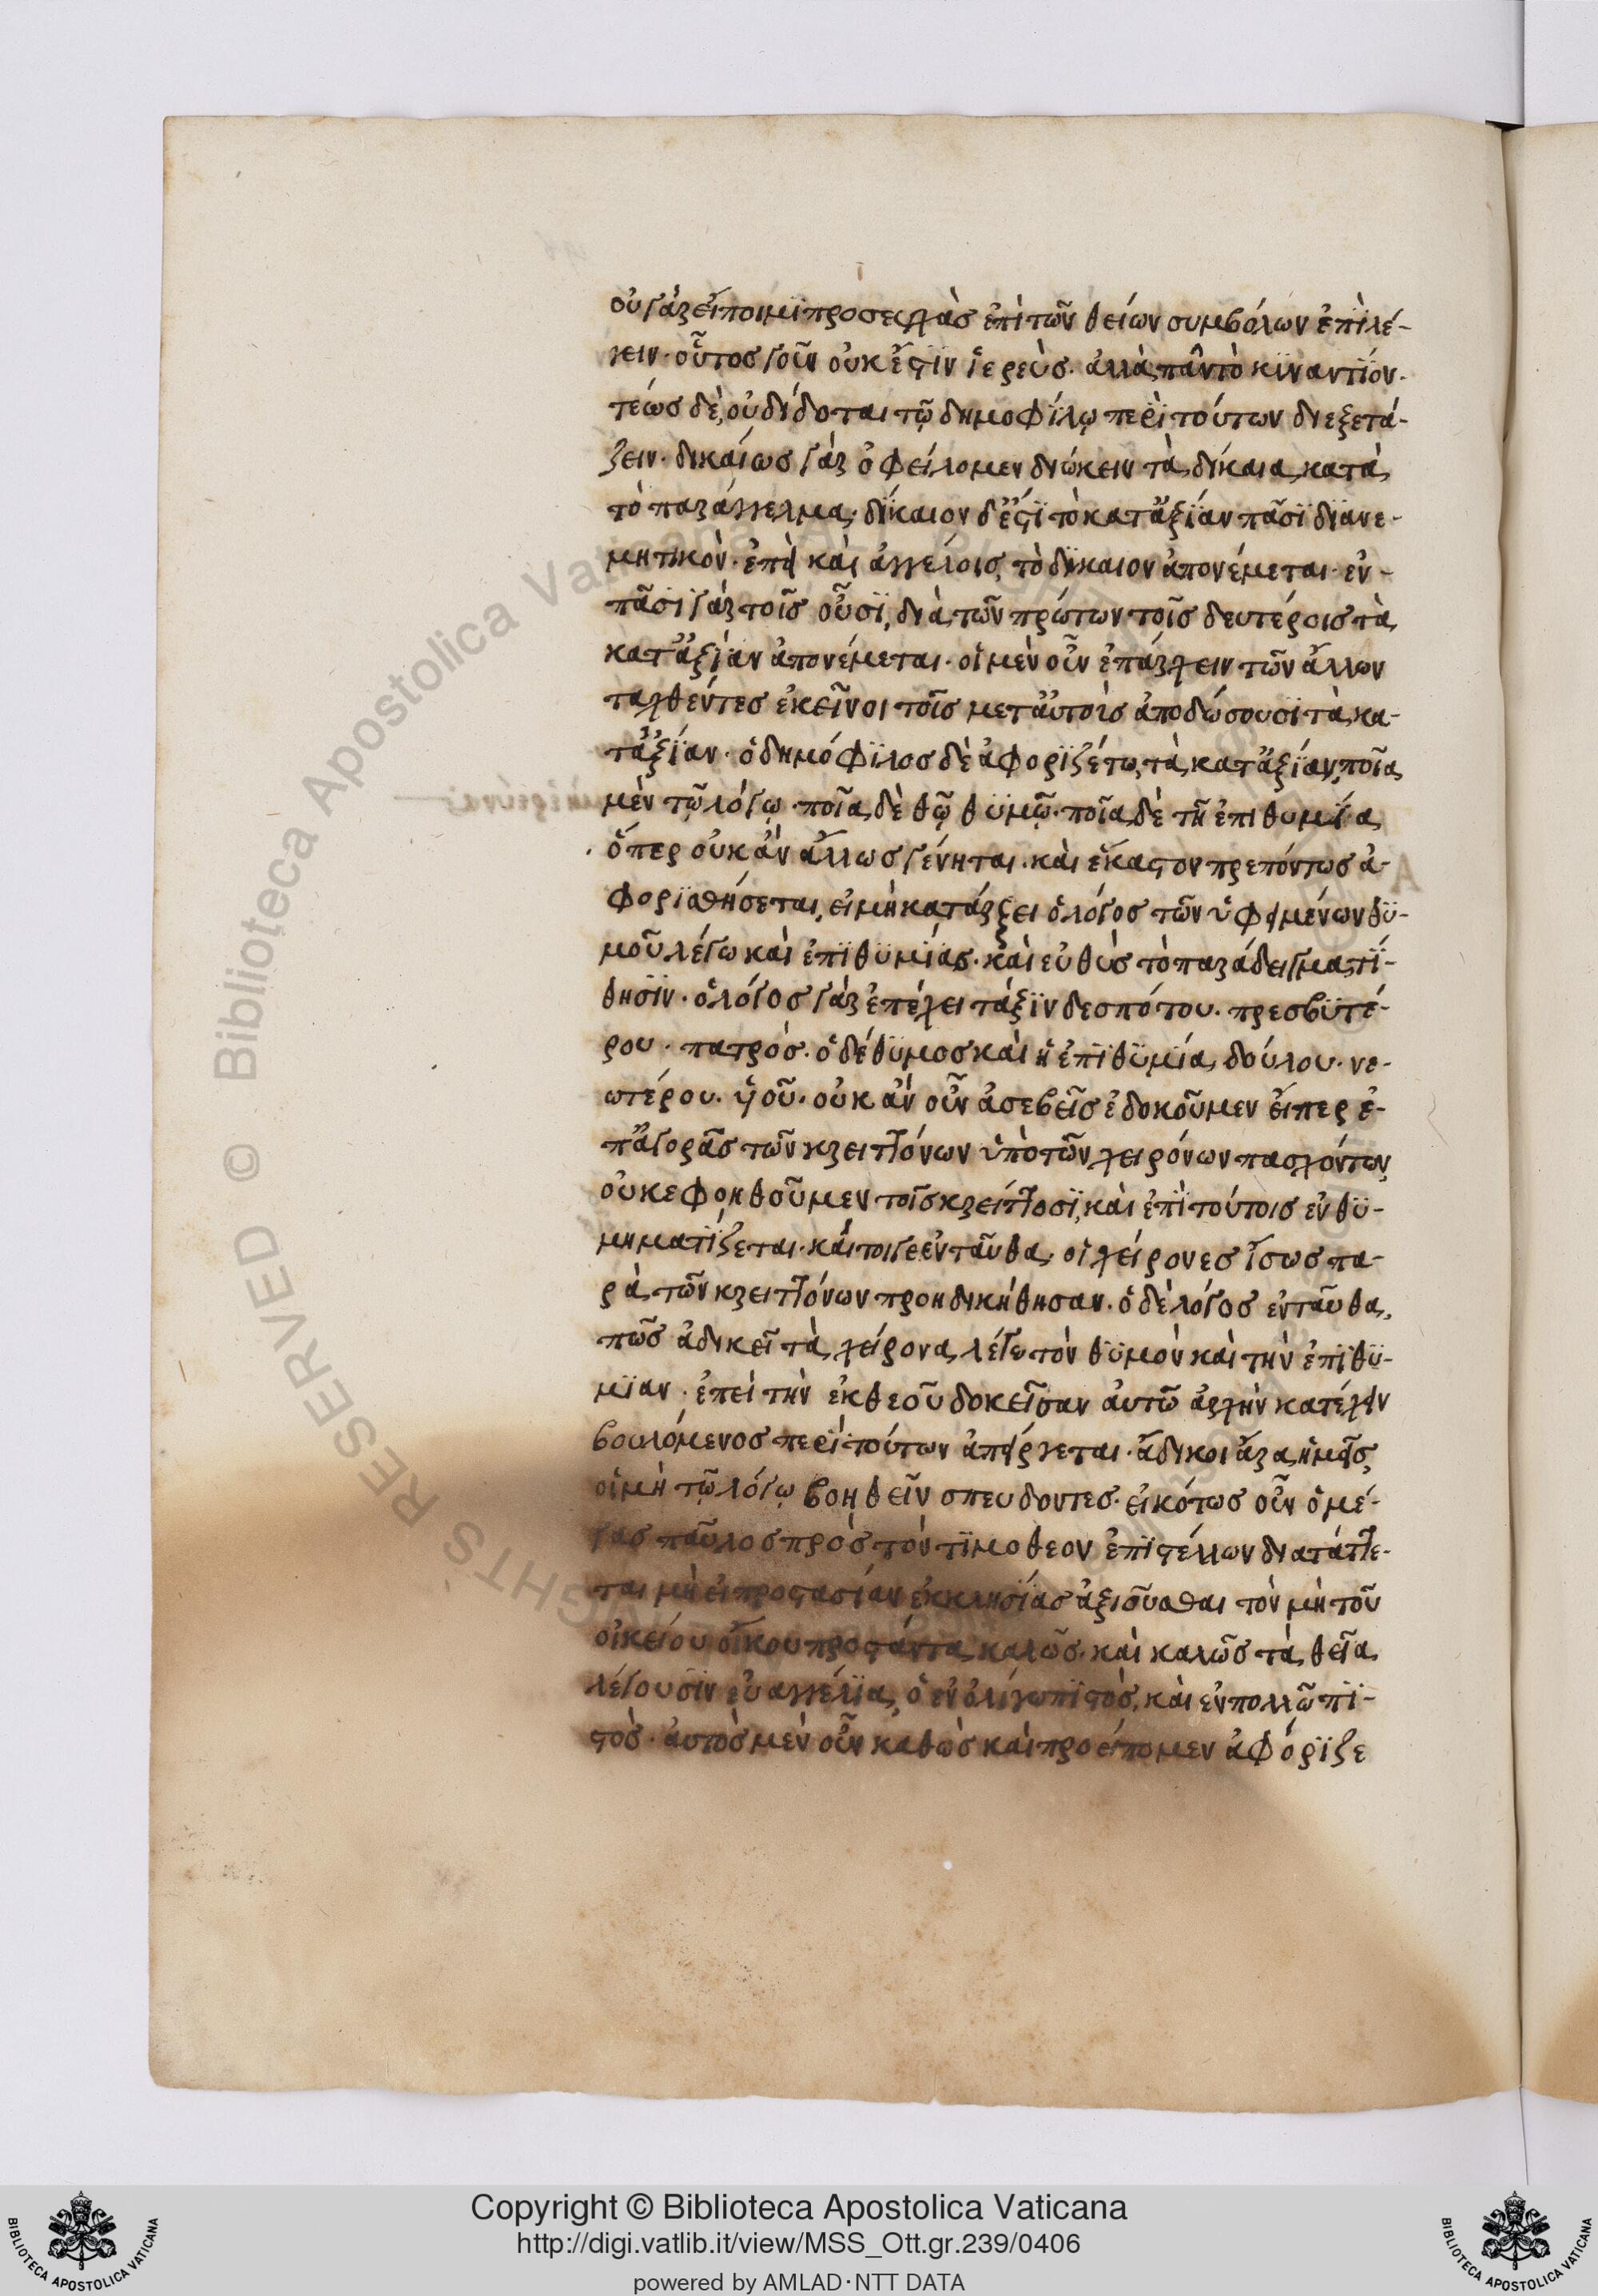 οὐ γὰρ εἴποιμϊ προσευχὰσ ἐπὶ τῶν θείων συμβόλων ἐπϊλέ-
γειν· οὗτοσ γοῦν οὐκ ἔστϊν ἱερεὺσ· ἀλλὰ παντὸ κϊναντϊόν·
τέωσ δὲ, οὐ δίδοται τῷ δημοφίλῳ περὶ τούτων διεξετά-
ζειν· δικαίωσ γὰρ ὀφείλομεν διώκειν τὰ δίκαια κατὰ
τὸ παράγγελμα· δίκαιον δ' ἐστϊ τὸ κατ' ἀξίαν πᾶσϊ διανε-
μητικὸν· ἐπεὶ καὶ ἀγγέλοισ, τὸ δίκαιον ἀπονέμεται· ἐν-
πᾶσϊ γὰρ τοῖσ οὖσϊ, διὰ τῶν πρώτων τοῖσ δευτέροισ τὰ
κατ' ἀξίαν ἀπονέμεται· οἱ μὲν οὖν ἐπάρχειν τῶν ἄλλων
ταχθέντεσ ἐκεῖνοι τοῖσ μετ' αὐτοὶσ ἀποδώσουσϊ τὰ κα-
τ' ἀξίαν· ὁ δημόφϊλοσ δὲ ἀφορϊζέτω, τὰ κατ' ἀξίαν, ποῖα
μὲν τῷ λόγῳ· ποῖα δὲ θῷ θϋμῷ· ποῖα δὲ τῆ ἐπιθυμία
ὅπερ οὐκ ἂν ἄλλωσ γένηται· καὶ ἕκαστον πρεπόντωσ ἀ-
φορϊσθήσεται, εἰ μὴ κατάρξει ὁ λόγοσ τῶν ὑφειμένων θϋ-
μοῦ λέγω καὶ ἐπϊθϋμίασ· καὶ εὐθὺσ τὸ παράδειγμα τί-
θησϊν· ὁ λόγοσ γὰρ ἐπέχει τάξϊν δεσπότου· πρεσβϋτέ-
ρου· πατρόσ· ὁ δὲ θϋμοσ καὶ ἡ ἐπϊθϋμία, δούλου· νε-
ωτέρου· ὑοῦ· οὐκ ἂν οὖν ἀσεβεῖσ ἐδοκοῦμεν εἴπερ ἐ-
π' ἀγορᾶσ τῶν κρειττόνων ὑπὸ τῶν χειρόνων πασχόντων
οὐκ εφοηθοῦμεν τοῖσ κρείττοσϊ, καὶ ἐπὶ τούτοισ ἐνθϋ-
μηματίζεται· καίτοιγε ἐνταῦθα, οἱ χείρονεσ ἴσωσ πα-
ρὰ τῶν κρειττόνων προηδικήθησαν· ὁ δὲ λόγοσ ἐνταῦθα,
πῶσ ἀδικεῖ τὰ χείρονα, λέγω τὸν θϋμὸν καὶ τὴν ἐπϊθϋ-
μϊαν· ἐπεὶ τὴν ἐκ θεοῦ δοκεῖσαν αὐτῶ ἀρχὴν κατέχειν
βουλόμενοσ περὶ τούτων ἀπείργεται· ἄδικοι ἄρα ἡμεῖσ,
οἱ μὴ τῷ λόγῳ βοηθεῖν σπευδοντεσ· εἰκότωσ οὖν ὁ μέ-
γασ παῦλοσ πρὸσ τὸν τϊμοθεον ἐπϊστέλλων διατάττε-
ται μὴ εἰ προστασίαν ἐκκλησίασ ἀξιοῦσθαι τὸν μὴ τοῦ
οἰκείου οἴκου προστάντα καλῶσ· καὶ καλῶσ τὰ θεῖα
λέγουσϊν εὐαγγέλϊα, ὁ ἐν ὀλίγω πϊστὸσ, καὶ ἐν πολλῶ πϊ-
στὸσ· ἀυτὸσ μὲν οὖν καθὼσ καὶ προείπομεν ἀφόρϊζε
Copyright © Biblioteca Apostolica Vaticana
http://digi.vatlib.it/view/MSS_Ott.gr.239/0406
powered by AMLAD·NTT DATA